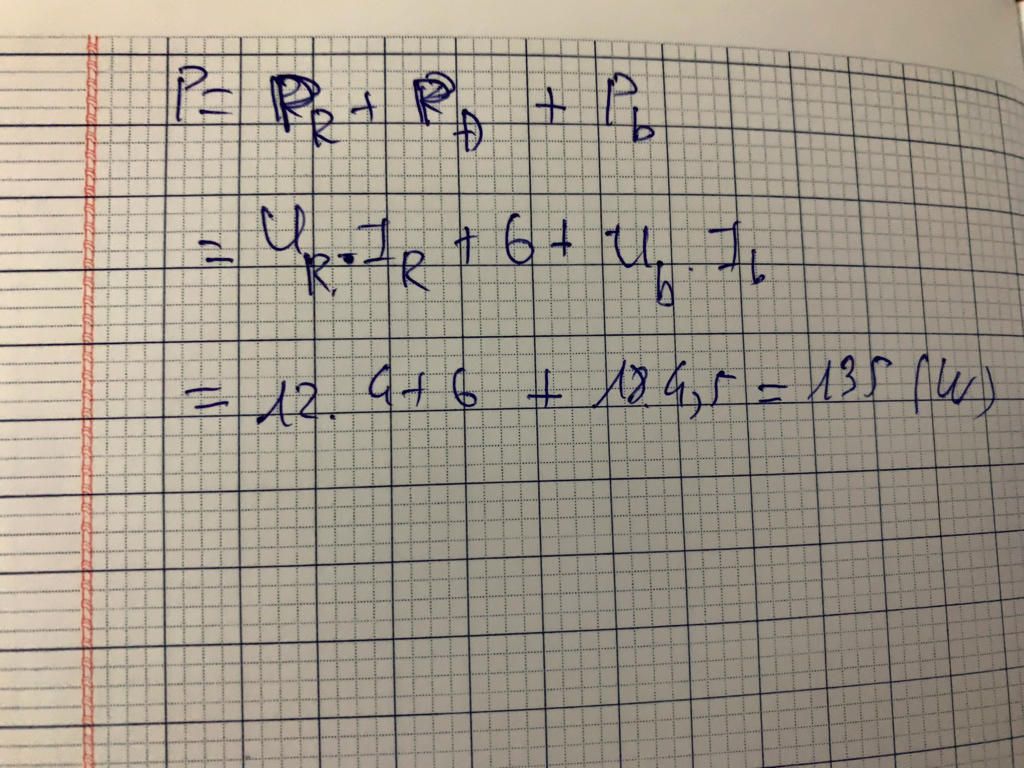 P = P_R + P_Đ + P_b
= U_R . I_R + 6 + U_b . I_b
= 12. 4 + 6 + 18. 4,5 = 135 (W)